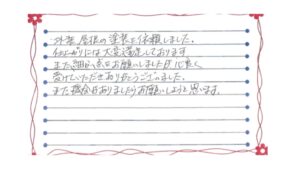 外装、屋根の塗装を依頼しました。
仕上がりには大変満足しております。
また細かい点もお願いしました所心良く
受けていただきありがとうございました。
また機会がありましたらお願いしようと思います。